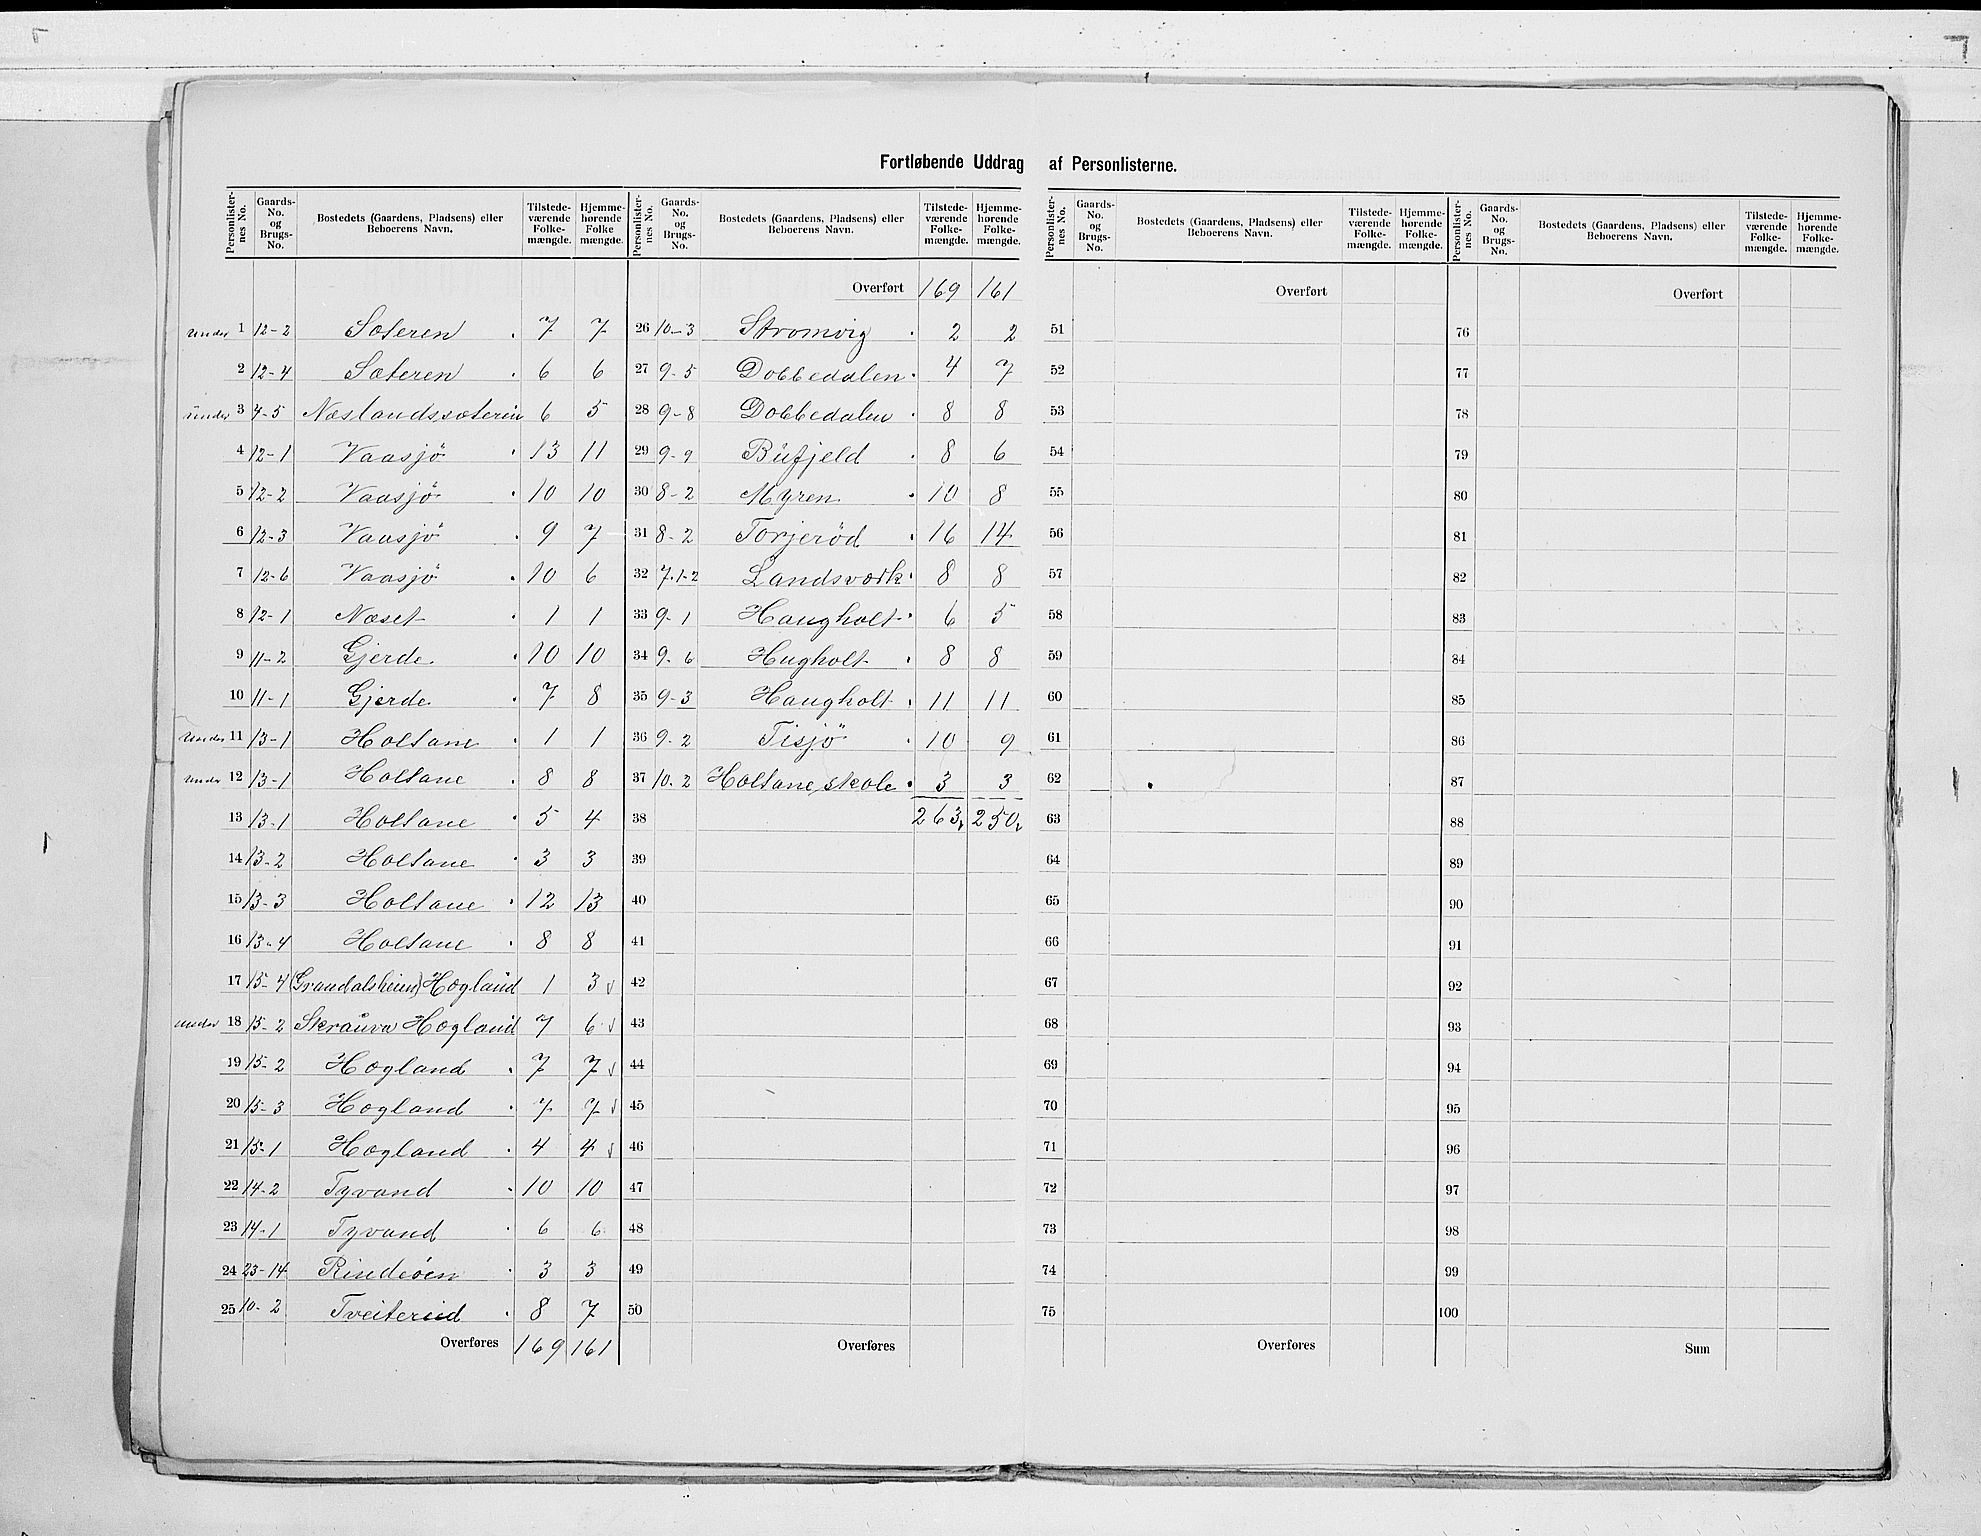 Fortløbende Uddrag af Personlisterne.
Personlisternes No. Gaards-No. og Brugs-No. Bostedets (Gaardens, Pladsens) eller Beboerens Navn. Tilstedeværende Folkemængde. Hjemmehørende Folkemængde.
under 1 12-2 Sæteren 7 7
2 12-4 Sæteren 6 6
under 3 4-5 Næslandssæterin 6 5
4 12-1 Vaasjö 13 11
5 12-2 Vaasjö 10 10
6 12-3 Vaasjö 9 7
7 12-6 Vaasjö 10 6
8 12-1 Næset 1 1
9 11-2 Gjerde 10 10
10 11-1 Gjerde 7 8
under 11 13-1 Holtane 1 1
under 12 13-1 Holtane 8 8
13 13-1 Holtane 5 4
14 13-2 Holtane 3 3
15 13-3 Holtane 12 13
16 13-4 Holtane 8 8
17 15-4 (Grandalsheim) Høgland 1 3
under 18 15-2 Skrauva Høgland 7 6
19 15-2 Høgland 7 7
20 15-3 Høgland 7 7
21 15-1 Høgland 4 4
22 14-2 Tyvand 10 10
23 14-1 Tyvand 6 6
24 23-14 3 3
25 10-2 Tveitereid 8 7
Overføres 169 161
Personlisternes No. Gaards-No. og Brugs-No. Bostedets (Gaardens, Pladsens) eller Beboerens Navn. Tilstedeværende Folkemængde. Hjemmehørende Folkemængde.
Overført 169 161
26 10-3 Strømvig 2 2
27 9-5 Dobbedalen 4 7
28 9-8 Dobbedalen 8 8
29 9-9 Bufjeld 8 6
30 8-2 Myren 10 8
31 8-2 Torjerød 16 14
32 7.1-2 Landsværk 8 8
33 9-1 Haugholt 6 5
34 9-6 Hugholt 8 8
35 9-3 Haugholt 11 11
36 9-2 Tisjö 10 9
37 10-2 Holtane skole 3 3
38 263 250
39
40
41
42
43
44
45
46
47
48
49
50
Overføres
Personlisternes No. Gaards-No. og Brugs-No. Bostedets (Gaardens, Pladsens) eller Beboerens Navn. Tilstedeværende Folkemængde. Hjemmehørende Folkemængde.
Overført
51
52
53
54
55
56
57
58
59
60
61
62
63
64
65
66
67
68
69
70
71
72
73
74
75
Overføres
Personlisternes No. Gaards-No. og Brugs-No. Bostedets (Gaardens, Pladsens) eller Beboerens Navn. Tilstedeværende Folkemængde. Hjemmehørende Folkemængde.
Overført
76
77
78
79
80
81
82
83
84
85
86
87
88
89
90
91
92
93
94
95
96
97
98
99
100
Sum